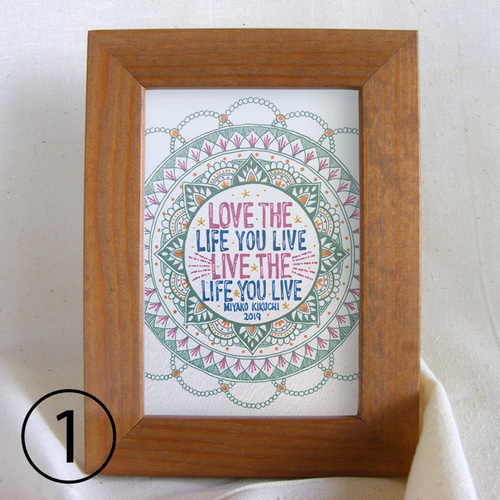 LOVE THE
LIFE YOU LIVE
LIVE THE
LIFE YOU LIVE
MIYAKO KIKUCHI
2019
1